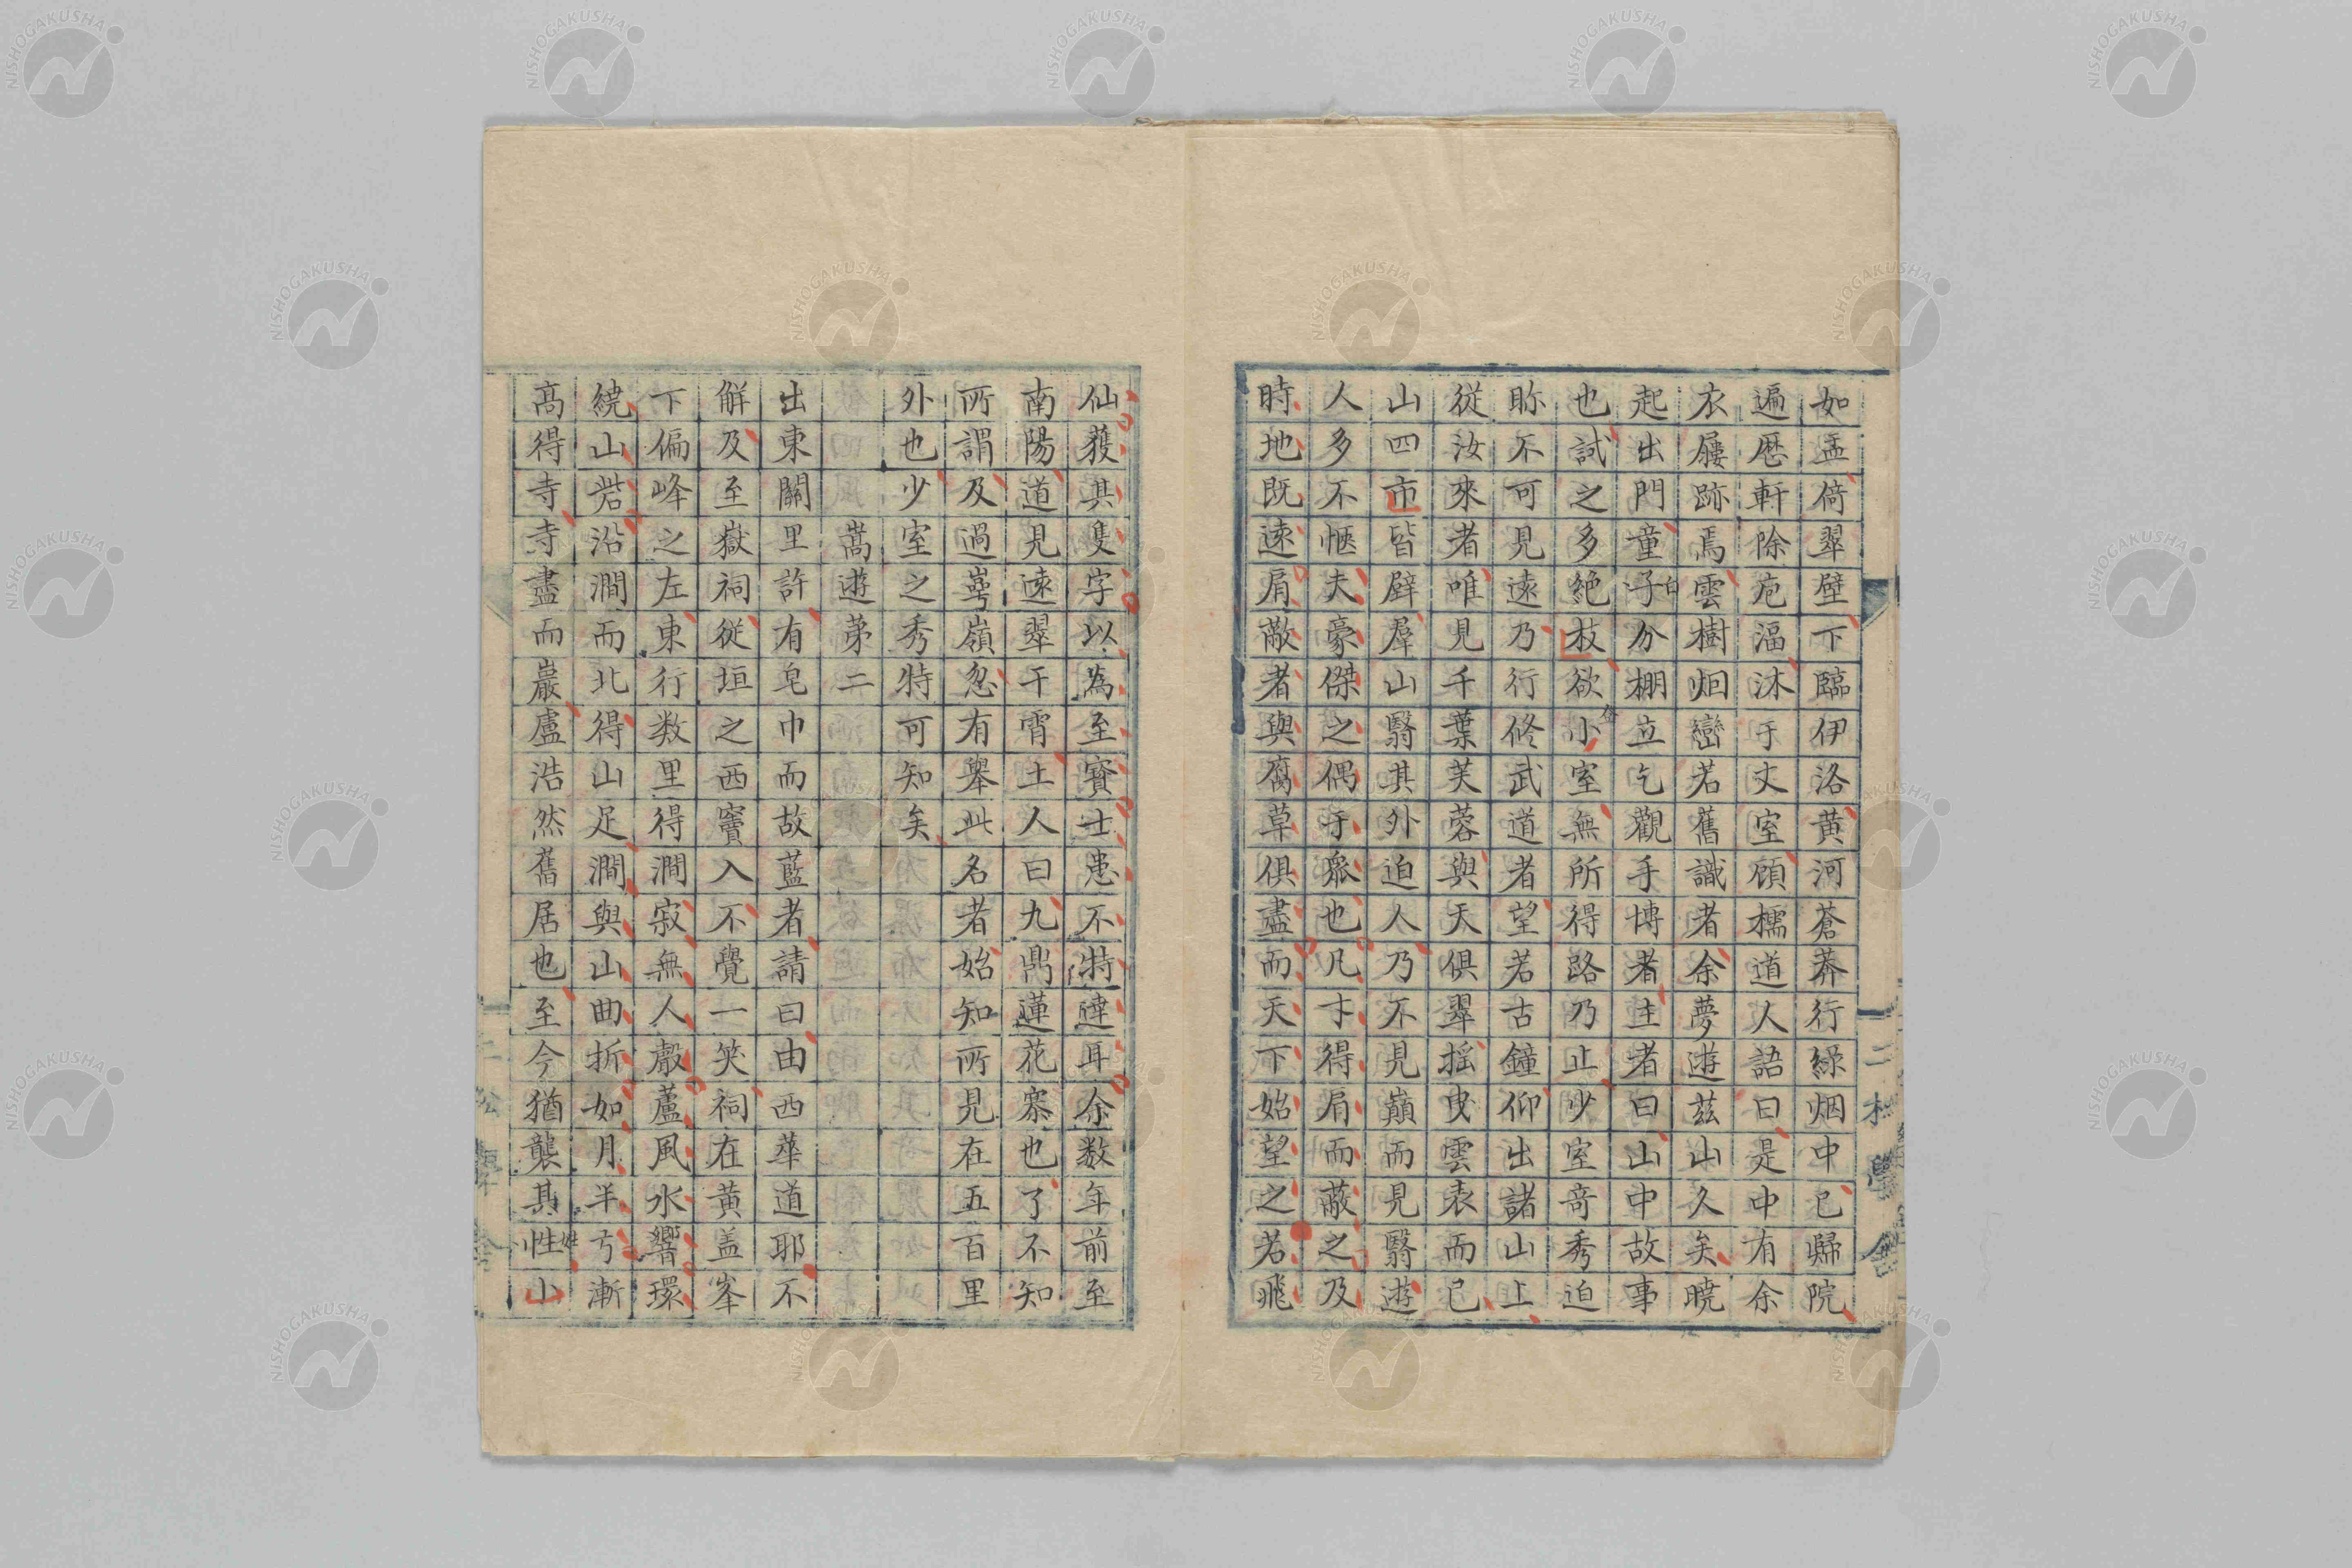 如盂倚翠壁下臨伊洛黄河蒼莽行綠烟中已歸院
遍歴軒除庖湢沐于丈室頋檽道人語曰是中有余
衣屨跡焉雲樹烟巒若舊識者余夢遊茲山久矣曉
起出門童子白分棚立乞觀手博者主者曰山中故事
也試之多絶技欲小室無所得路乃止少室竒秀迫
眎不可見遠乃行修武道者望若古鐘仰出諸山上
從汝來者唯見千葉芙蓉與天俱翠揺曳雲表而已
山四市皆辟羣山翳其外迫人乃不見巔而見翳遊
人多不愜夫豪傑之偶于衆也凡才得肩而蔽之及
時地既遠肩蔽者與腐草俱盡而天下始望之若飛
仙獲其隻字以為至寳士患不特達耳余数年前至
南陽道見遠翠干霄土人曰九鼎蓮花寨也了不知
所謂及過崿嶺忽有舉此名者始知所見在五百里
外也少室之秀特可知矣
嵩遊第二
出東關里許有皂巾而故藍者請曰由西華道耶不
解及至嶽祠從垣之西竇入不覺一笑祠在黄盖峯
下偏峰之左東行数里得澗寂無人聲蘆風水響環
繞山砦沿澗而北得山足澗與山曲折如月半亏漸
髙得寺寺盡而巖盧浩然舊居也至今猶襲其性小
二松學舍
二松學舍
NISHOGAKUSHA